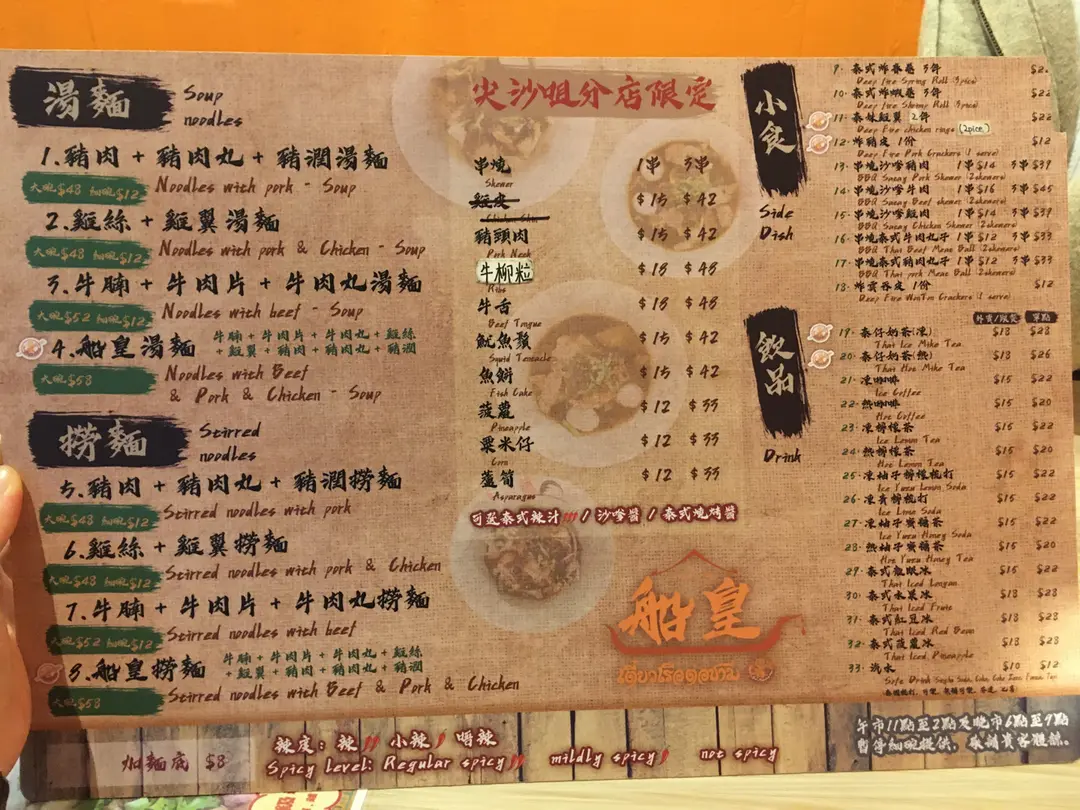 湯麵
Soup
noodles
1.豬肉 + 豬肉丸 + 豬潤湯麵
大碗$48 細碗$12
Noodles with pork - Soup
2.雞絲 + 雞翼湯麵
大碗$48 細碗$12
Noodles with pork & Chicken - Soup
3.牛腩 + 牛肉片 + 牛肉丸湯麵
大碗$52 細碗$12
Noodles with beef - Soup
4.船皇湯麵
牛腩 + 牛肉片 + 牛肉丸 + 雞絲
+ 雞翼 + 豬肉 + 豬肉丸 + 豬潤
大碗$58
Noodles with Beef
& Pork & Chicken - Soup
撈麵
Stirred
noodles
5.豬肉 + 豬肉丸 + 豬潤撈麵
大碗$48 細碗$12
Stirred noodles with pork
6.雞絲 + 雞翼撈麵
大碗$48 細碗$12
Stirred noodles with pork & Chicken
7.牛腩 + 牛肉片 + 牛肉丸撈麵
大碗$52 細碗$12
Stirred noodles with beef
8.船皇撈麵
牛腩 + 牛肉片 + 牛肉丸 + 雞絲
+ 雞翼 + 豬肉 + 豬肉丸 + 豬潤
大碗$58
Stirred noodles with Beef & Pork & Chicken
尖沙咀分店限定
串燒 1串 3串
Skewer
雞皮 $15 $42
豬頭肉 $15 $42
Pork Neck
牛柳粒 $18 $48
Ribs
牛舌 $18 $48
Beef Tongue
魷魚鬚 $15 $42
Squid Tentacle
魚餅 $15 $42
Fish Cake
菠蘿 $12 $33
Pineapple
粟米仔 $12 $33
Corn
蘆筍 $12 $33
Asparagus
可選泰式辣汁 / 沙嗲醬 / 泰式燒烤醬
船皇
เตี๋ยวเรือดอนาม
小食
Side
Dish
9. 泰式炸春卷 3件
Deep fire Spring Roll (3pics)
10. 泰式炸蝦卷 3件 $22
Deep fire Shrimp Roll (3pics)
11. 泰妹雞翼 2件 $22
Deep Fire chicken rings (2pice)
12. 炸豬皮 1份 $12
Deep Fire Pork Crackers (1 serve)
13. 串燒沙嗲豬肉 1串$14 3串$39
BBQ Saeay Pork Skewer (3skewers)
14. 串燒沙嗲牛肉 1串$16 3串$45
BBQ Saeay Beef skewer (3skewers)
15. 串燒沙嗲雞肉 1串$14 3串$39
BBQ Saeay Chicken Skewer (3skewers)
16. 串燒泰式牛肉丸子 1串$12 3串$33
BBQ Thai Beef Meat Ball (3skewers)
17. 串燒泰式豬肉丸子 1串$12 3串$33
BBQ Thai pork Meat Ball (3skewers)
18. 炸雲吞皮 1份 $12
Deep Fire WonTon Crackers (1 serve)
飲品
Drink
外賣/跟餐 單點
19. 泰仔奶茶(凍) $18 $28
Thai Ice Milk Tea
20. 泰仔奶茶(熱) $18 $26
Thai Hot Milk Tea
21. 凍咖啡 $15 $22
Ice Coffee
22. 熱咖啡 $15 $20
Hot Coffee
23. 凍檸檬茶 $15 $22
Ice Lemon Tea
24. 熱檸檬茶 $15 $20
Hot Lemon Tea
25. 凍柚子檸檬梳打 $15 $22
Ice Yuzu Lemon Soda
26. 凍青檸梳打 $15 $22
Ice Lime Soda
27. 凍柚子蜜糖茶 $15 $22
Ice Yuzu Honey Soda
28. 熱柚子蜜糖茶 $15 $20
Hot Yuzu Honey Tea
29. 泰式龍眼冰 $15 $22
Thai Iced Longan
30. 泰式水果冰 $18 $28
Thai Iced Fruit
31. 泰式紅豆冰 $18 $28
Thai Iced Red Bean
32. 泰式菠蘿冰 $18 $28
Thai Iced Pineapple
33. 汽水 $10 $12
加麵底 $8
辣度: 辣 小辣 唔辣
Spicy Level: Regular spicy mildly spicy not spicy
午市11點至2點及晚市6點至9點
暫停細碗提供，敬請貴客體諒。